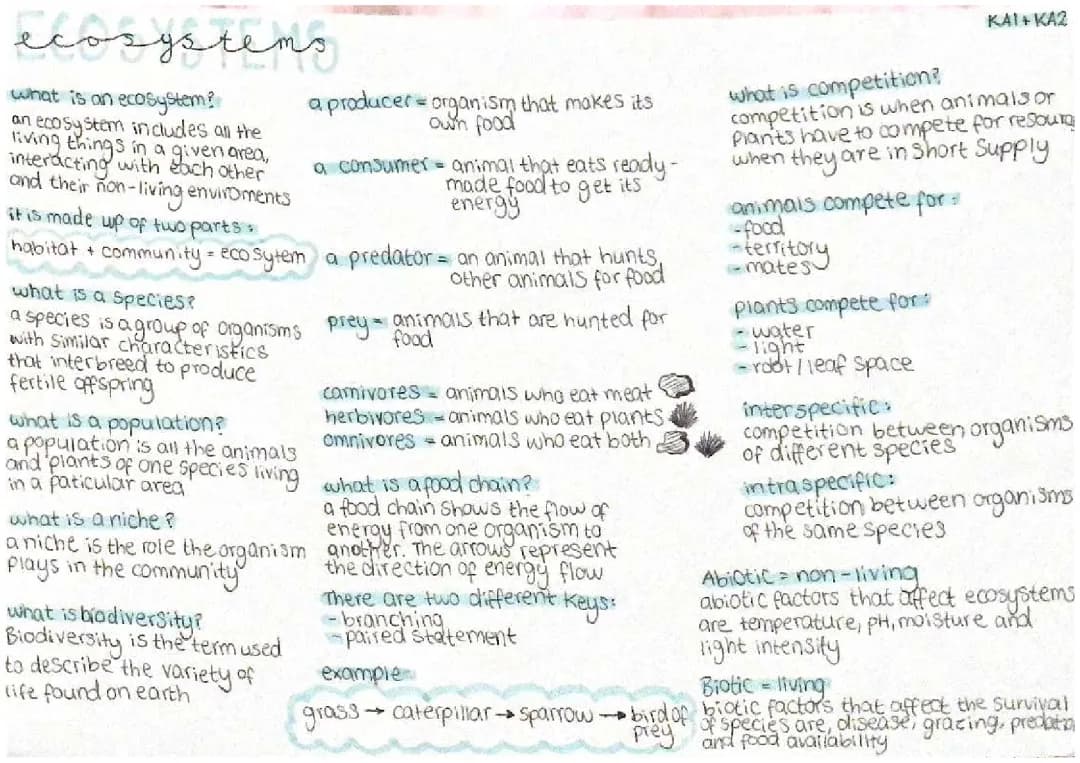 ECOSYSTEMS
ecosystems
KA1+KA2
what is an ecosystem?
an ecosystem includes all the
living things in a given area,
interacting with each other
and their non-living enviroments
it is made up of two parts:
habitat + community = ecosytem
what is a species?
a species is a group of organisms
with similar characteristics
that interbreed to produce
fertile offspring
what is a population?
a population is all the animals
and plants of one species living
in a paticular area
what is a niche?
a niche is the role the organism
plays in the community
what is biodiversity?
Biodiversity is the term used
to describe the variety of
life found on earth
a producer = organism that makes its
own food
a consumer = animal that eats ready-
made food to get its
energy
a predator = an animal that hunts
other animals for food
prey = animals that are hunted for
food
carnivores = animals who eat meat
herbivores = animals who eat plants
omnivores = animals who eat both
what is a food chain?
a food chain shows the flow of
energy from one organism to
another. The arrows represent
the direction of energy flow
There are two different keys:
- branching
- paired statement
example
grass → caterpillar → sparrow → bird of
prey
what is competition?
competition is when animals or
plants have to compete for
when they are in short supply
animals compete for:
- food
- territory
- mates
plants compete for:
- water
- light
- root / leaf space
interspecific:
competition between organisms
of different species
intraspecific:
competition between organisms
of the same species
Abiotic = non-living
abiotic factors that affect ecosystems
are temperature, pH, moisture and
light intensity
Biotic = living
biotic factors that affect the survival
of species are, disease, grazing,
and food availability